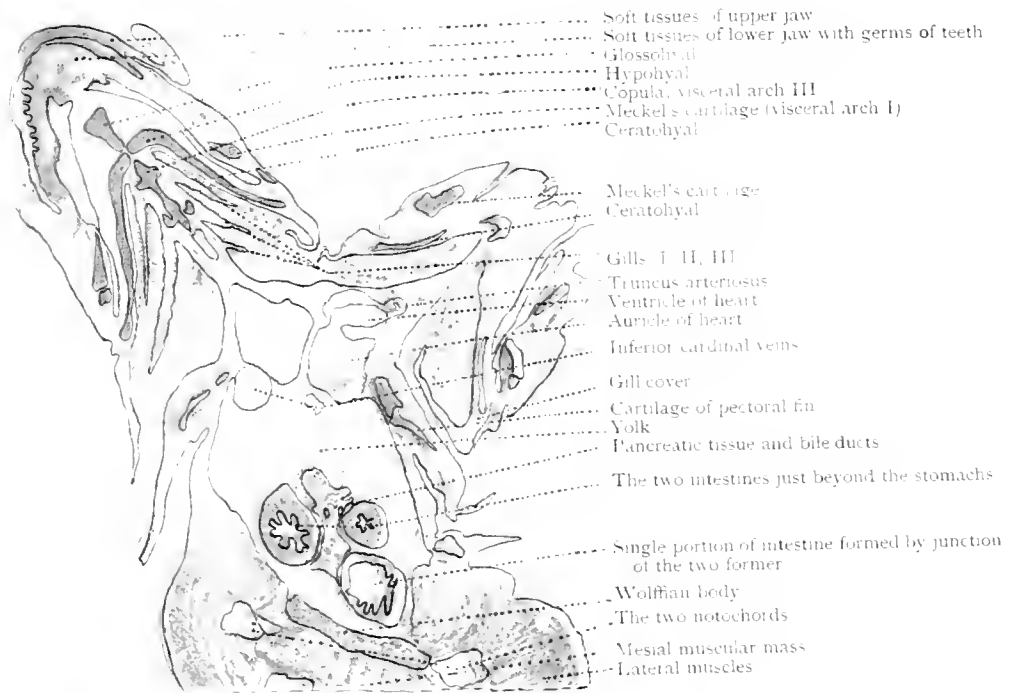 Soft tissues of upper jaw
Soft tissues of lower jaw with germs of teeth
Glossohyal
Hypohyal
Copula, visceral arch III
Meckel's cartilage (visceral arch I)
Ceratohyal
Meckel's cartilage
Ceratohyal
Gills I, II, III
Truncus arteriosus
Ventricle of heart
Auricle of heart
Inferior cardinal veins
Gill cover
Cartilage of pectoral fin
Yolk
Pancreatic tissue and bile ducts
The two intestines just beyond the stomachs
Single portion of intestine formed by junction
of the two former
Wolffian body
The two notochords
Mesial muscular mass
Lateral muscles